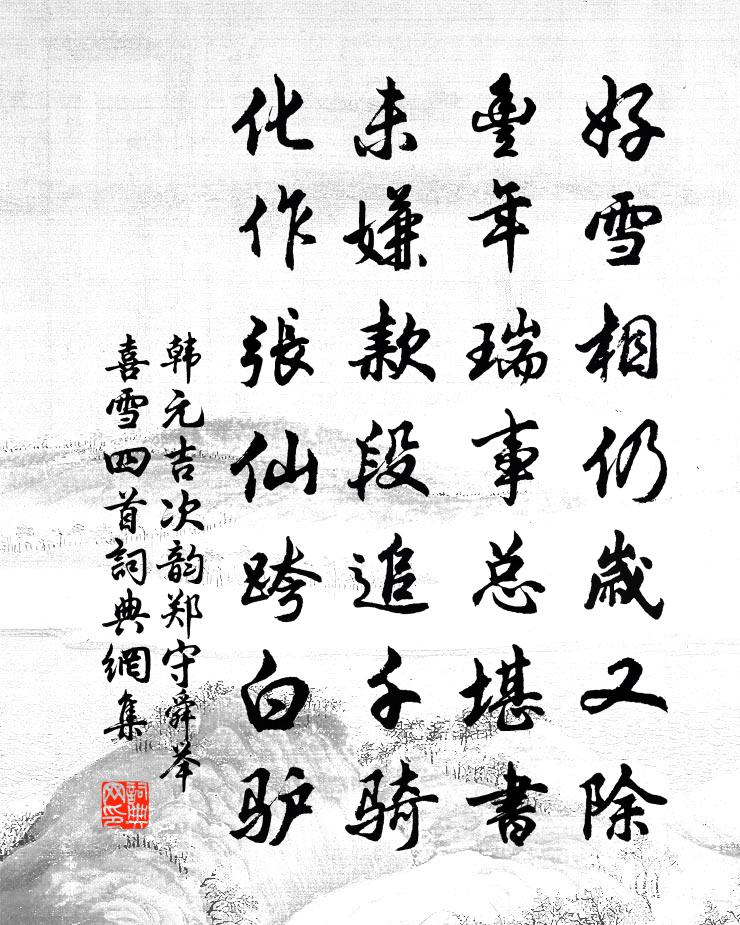 好雪相仍歲又除
豐年瑞事总堪書
未嫌款段追千騎
化作張仙跨白驴
韩元吉次韵郑守舜举
喜雪四首詞典網集
詞典网印